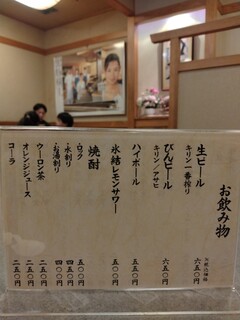 お飲み物
生ビール
キリン一番搾り 六五〇円
びんビール
キリン/アサヒ 六五〇円
ハイボール 五五〇円
氷結レモンサワー 五〇〇円
焼酎
・ロック 五〇〇円
・水割り 四五〇円
・お湯割り 四〇〇円
ウーロン茶 二五〇円
オレンジジュース 二五〇円
コーラ 二五〇円